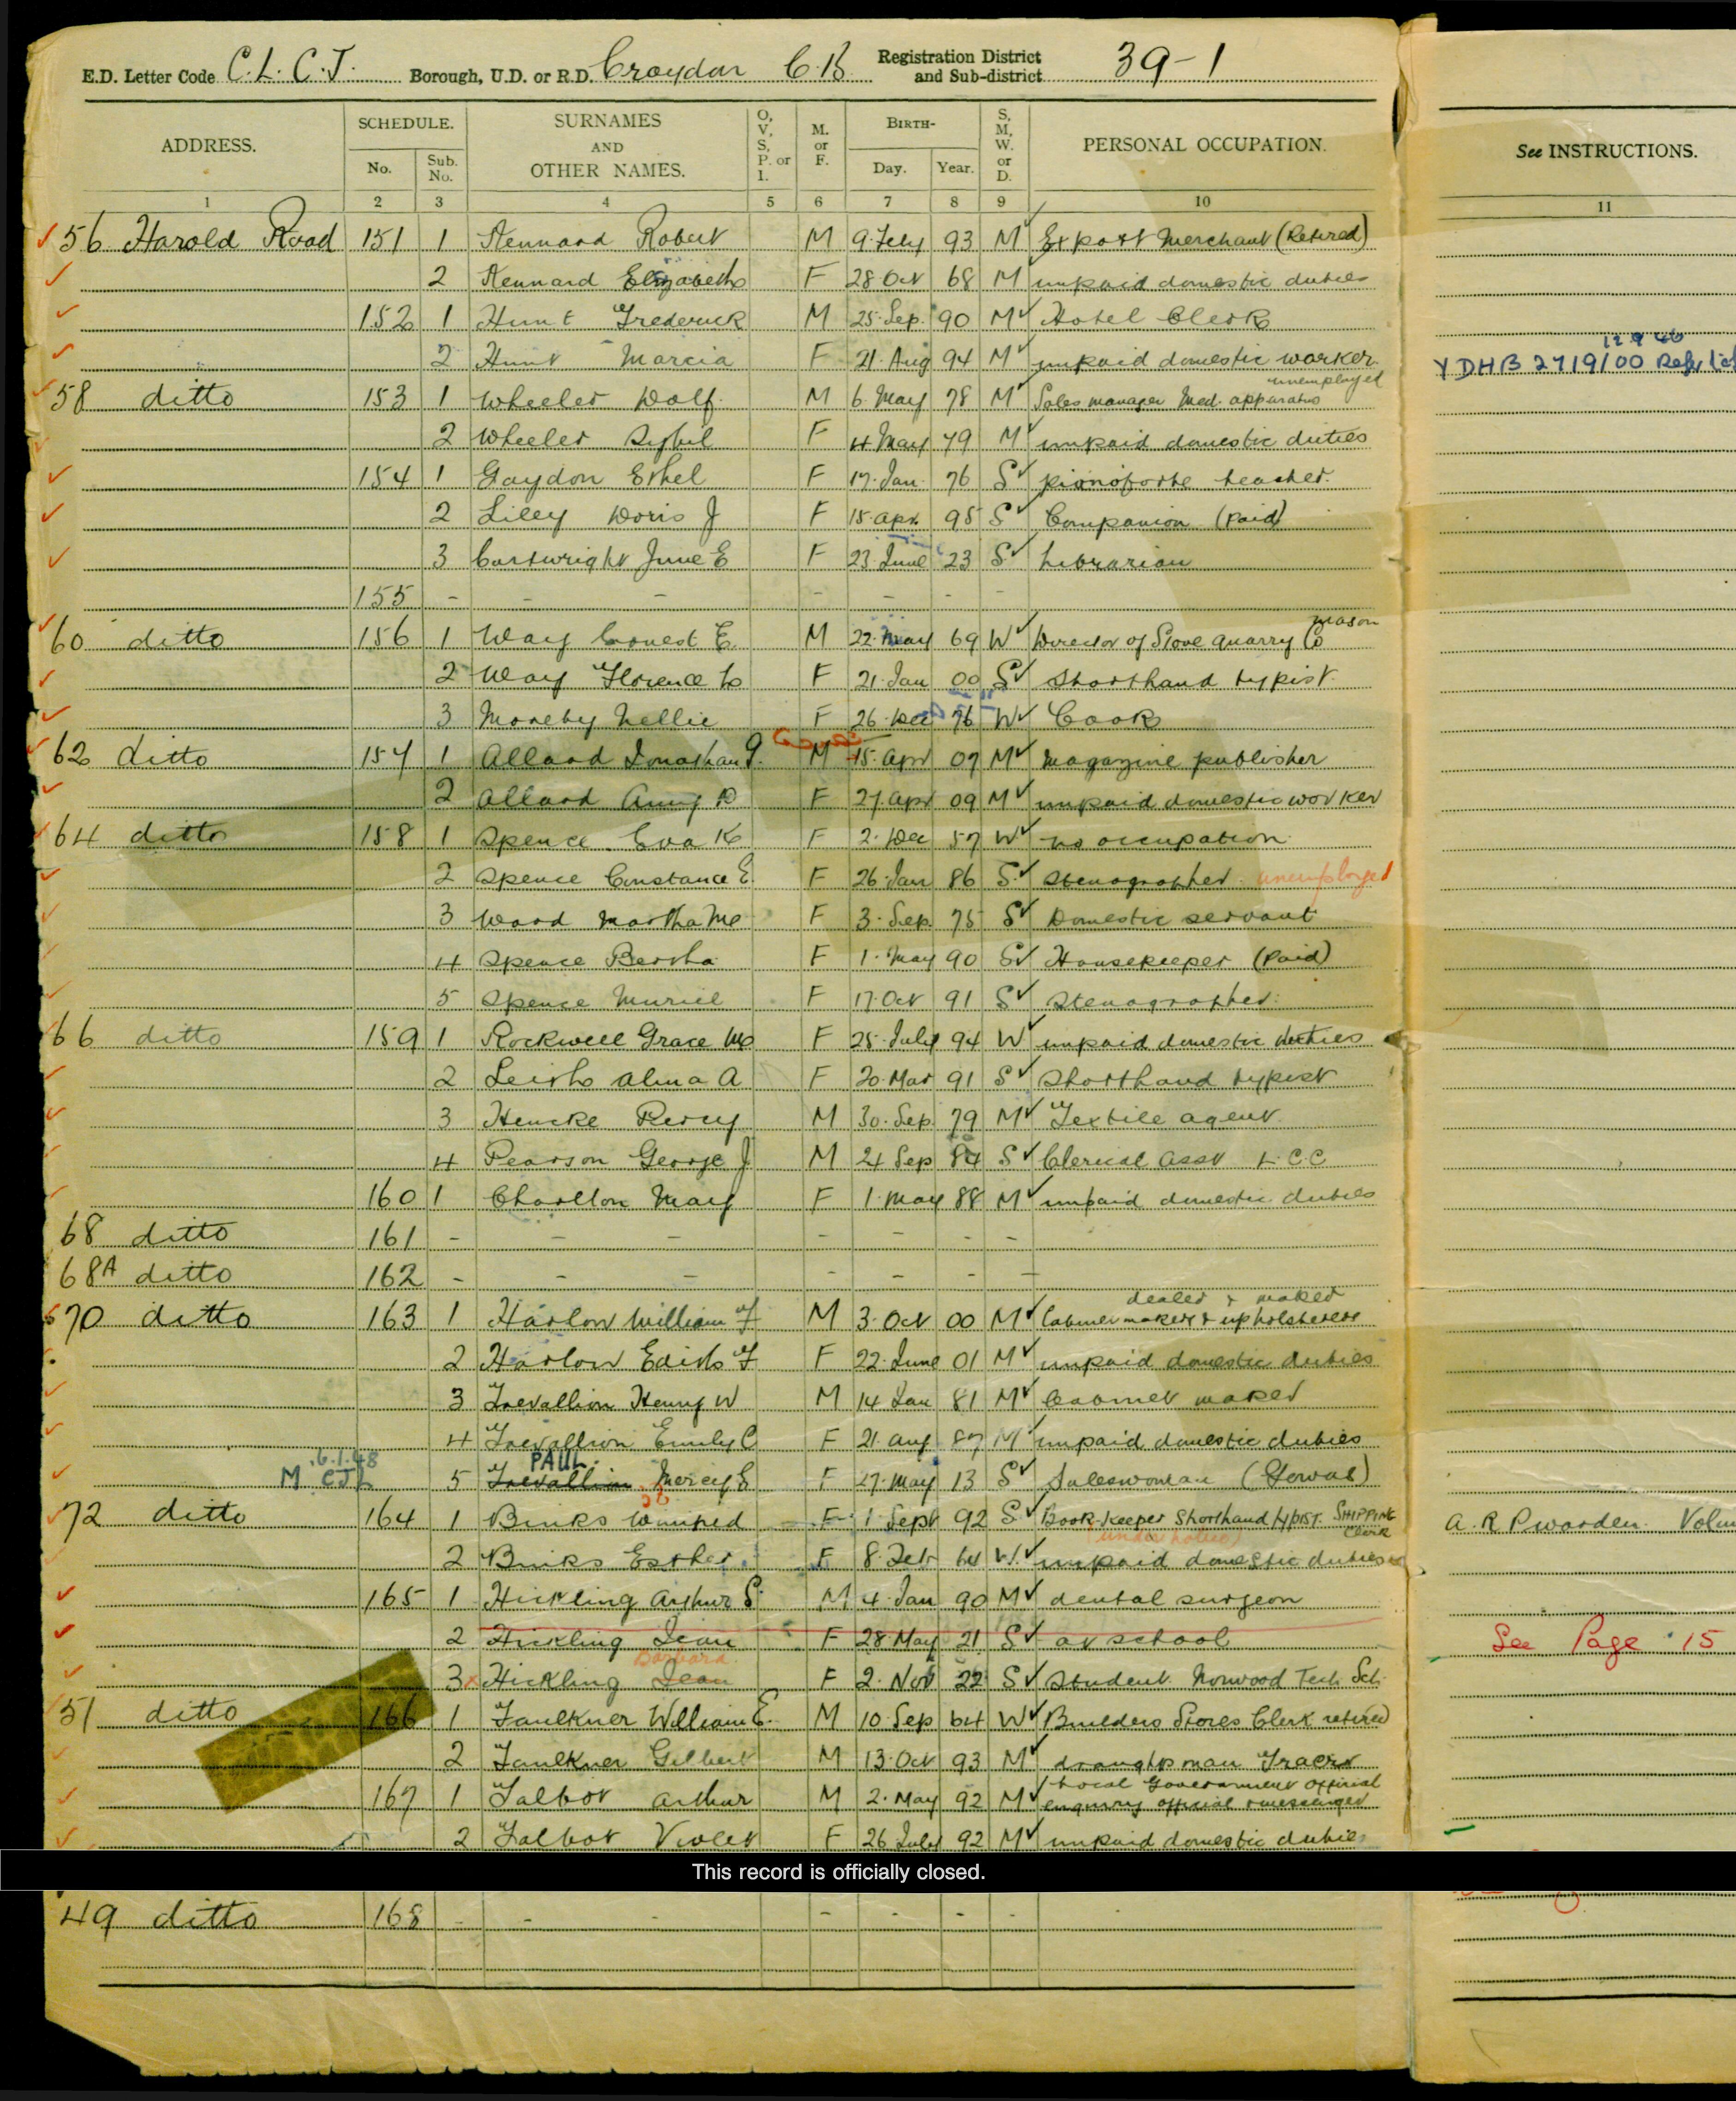 E.D. Letter Code C.L.C.J. Borough, U.D. or R.D. Croydon C.B. Registration District and Sub-district 39-1
ADDRESS. SCHEDULE. No. Sub. No. SURNAMES AND OTHER NAMES. O, V, S, P. or I. M. or F. BIRTH- Day. Year. S, M, W. or D. PERSONAL OCCUPATION. See INSTRUCTIONS.
1 2 3 4 5 6 7 8 9 10 11
56 Harold Road 151 1 Kennard Robert M 9 Feby 93 M Export Merchant (Retired)
2 Kennard Elizabeth F 28 Oct 68 M unpaid domestic duties
152 1 Hunt Frederick M 25 Sep. 90 M Hotel Clerk
12 9 40
2 Hunt Marcia F 21 Aug 94 M unpaid domestic worker YDHB 2719/00
unemployed
58 ditto 153 1 Wheeler Wolf M 6 May 78 M Sales manager Med. apparatus
2 Wheeler Sybil F 4 May 79 M unpaid domestic duties
154 1 Gaydon Ethel F 17 Jan 76 S pianoforte teacher
2 Lilley Doris J F 15 apr. 95 S Companion (paid)
3 Cartwright June E F 23 June 23 S Librarian
155 - - - - - - -
mason
60 ditto 156 1 Way Ernest E. M 22 May 69 W Director of Stone Quarry Co
2 Way Florence L F 21 Jan 00 S Shorthand typist
3 Moreby Nellie F 26 Dec 76 W Cook
62 ditto 157 1 Allard Jonathan G. M 15 apr 07 M Magazine publisher
2 Allard Amy D F 27 apr 09 M unpaid domestic worker
64 ditto 158 1 Spence Eva K F 2 Dec 57 W no occupation
2 Spence Constance E. F 26 Jan 86 S Stenographer unemployed
3 Ward Martha M F 3 Sep. 75 S Domestic servant
4 Spence Bertha F 1 May 90 S Housekeeper (Paid)
5 Spence Muriel F 17 Oct 91 S Stenographer
66 ditto 159 1 Rockwell Grace M F 25 July 94 W unpaid domestic duties
2 Leith Alma A F 20 Mar 91 S Shorthand typist
3 Hencke Percy M 30 Sep. 79 M Textile agent
4 Pearson George J M 24 Sep 84 S Clerical Asst L.C.C
160 1 Charlton May F 1 May 88 M unpaid domestic duties
68 ditto 161 - - - - - - -
68A ditto 162 - - - - - - -
dealer & maker
70 ditto 163 1 Harlow William F M 3 Oct 00 M Cabinet maker & upholsterer
2 Harlow Edith F F 22 June 01 M unpaid domestic duties
3 Trevallion Henry W M 14 Jan 81 M Cabinet maker
4 Trevallion Emily C F 21 aug 87 M unpaid domestic duties
6.1.48 PAUL
M CJL 5 Trevallion Mercy E F 27 May 13 S Saleswoman
72 ditto 164 1 Binks Winifred F 1 Sept 92 S Book-Keeper Shorthand typist SHIPPING Clerk A.R.P warden
under notice
2 Binks Esther F 8 Feb 64 W unpaid domestic duties
165 1 Hickling Arthur S. M 4 Jan 90 M dental surgeon
2 Hickling Jean F 28 May 21 S at school See Page 15
Barbara
3 Hickling Jean F 2 Nov 22 S Student Norwood Tech. Sch.
51 ditto 166 1 Faulkner William E. M 10 Sep 64 W Builders Stores Clerk retired
2 Faulkner Gilbert M 13 Oct 93 M draughtsman Tracer
Local Government official
167 1 Talbot Arthur M 2 May 92 M enquiry official & messenger
2 Talbot Violet F 26 July 92 M unpaid domestic duties
This record is officially closed.
49 ditto 168 - - - - - - -